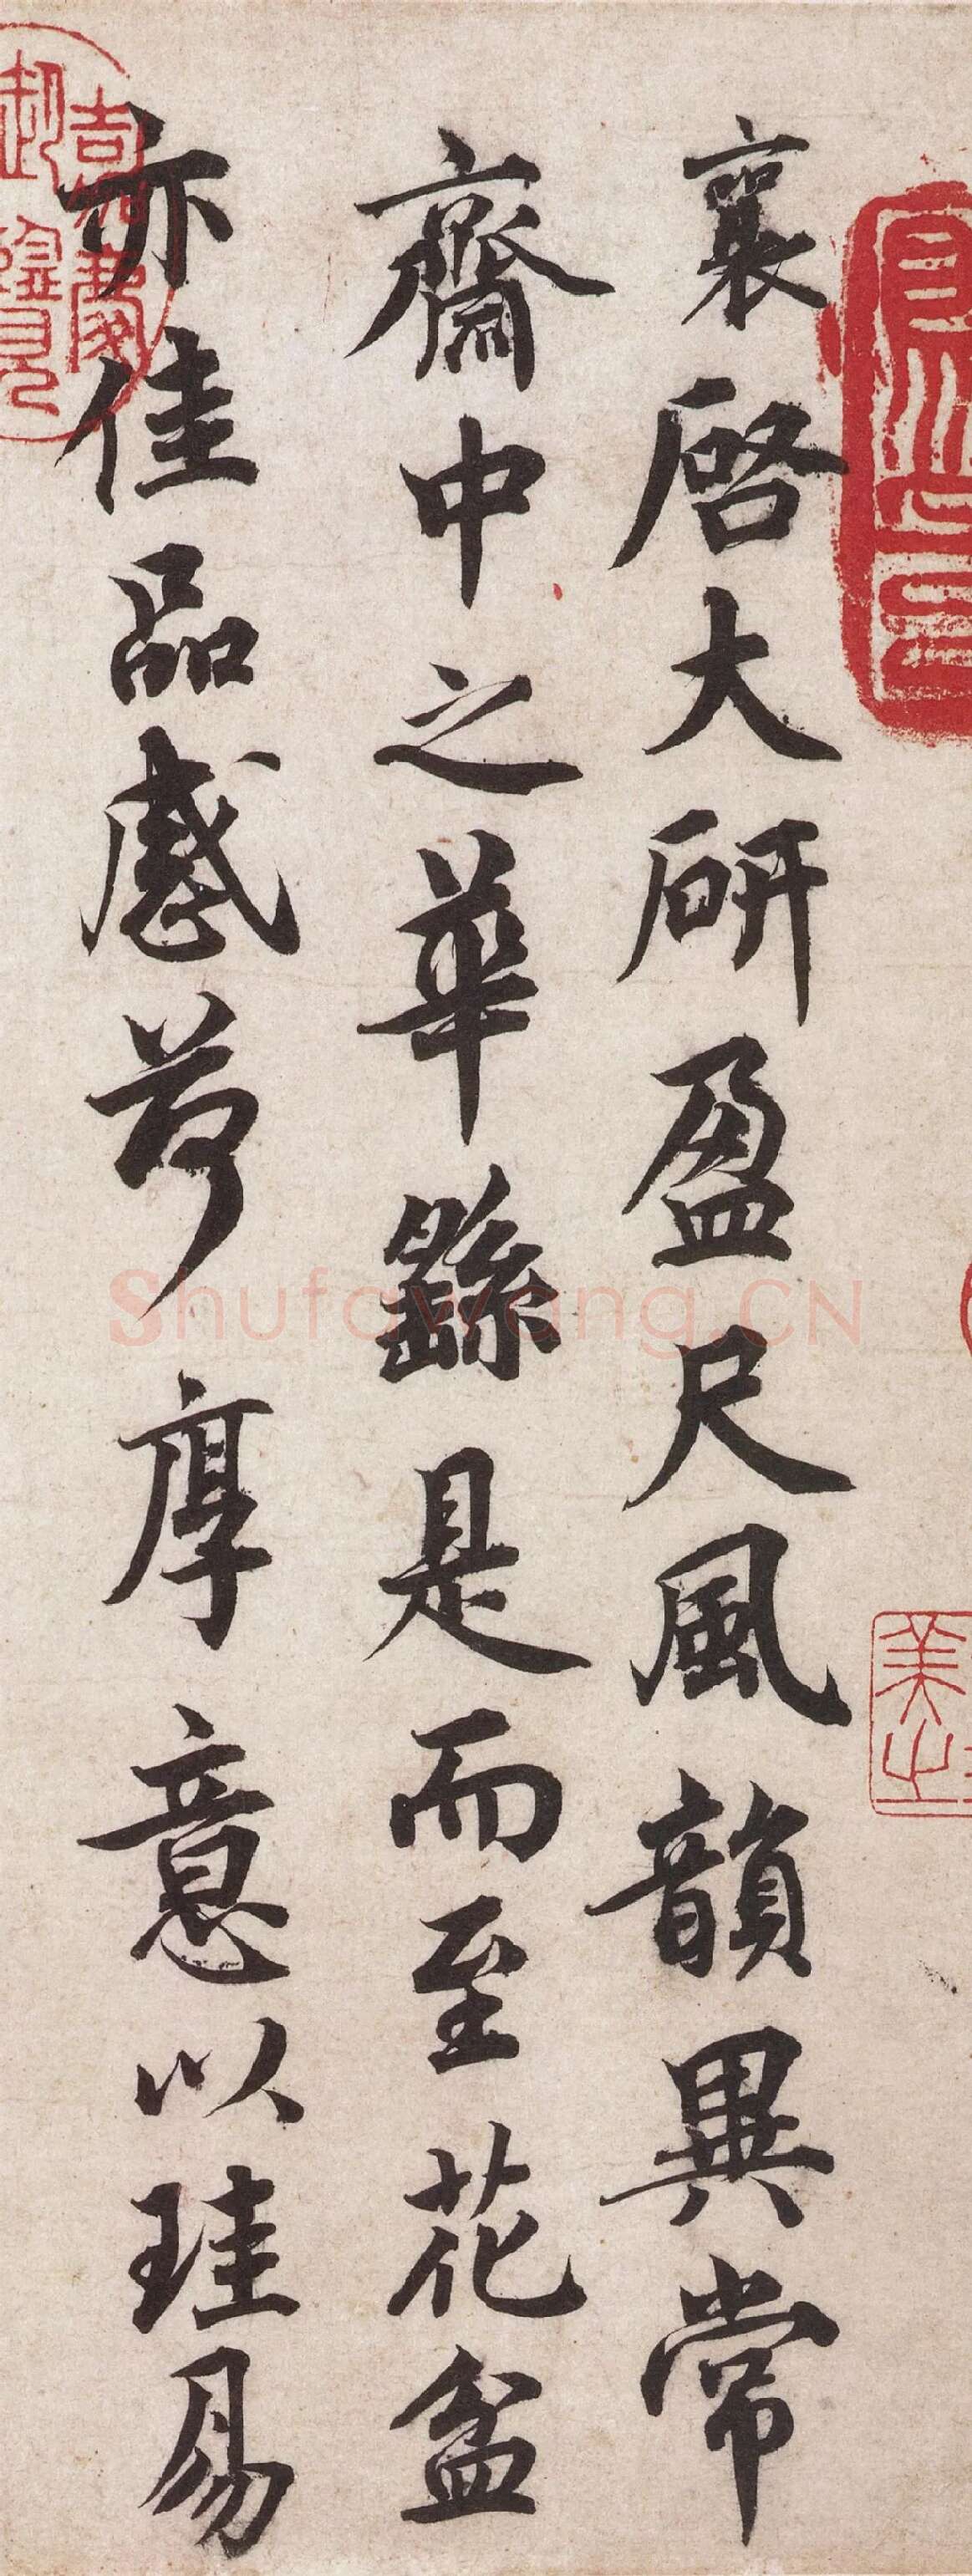 襄啓大研盈尺風韻異常
齋中之華繇是而至花盆
亦佳品感荷厚意以珪易
Shufawang.CN